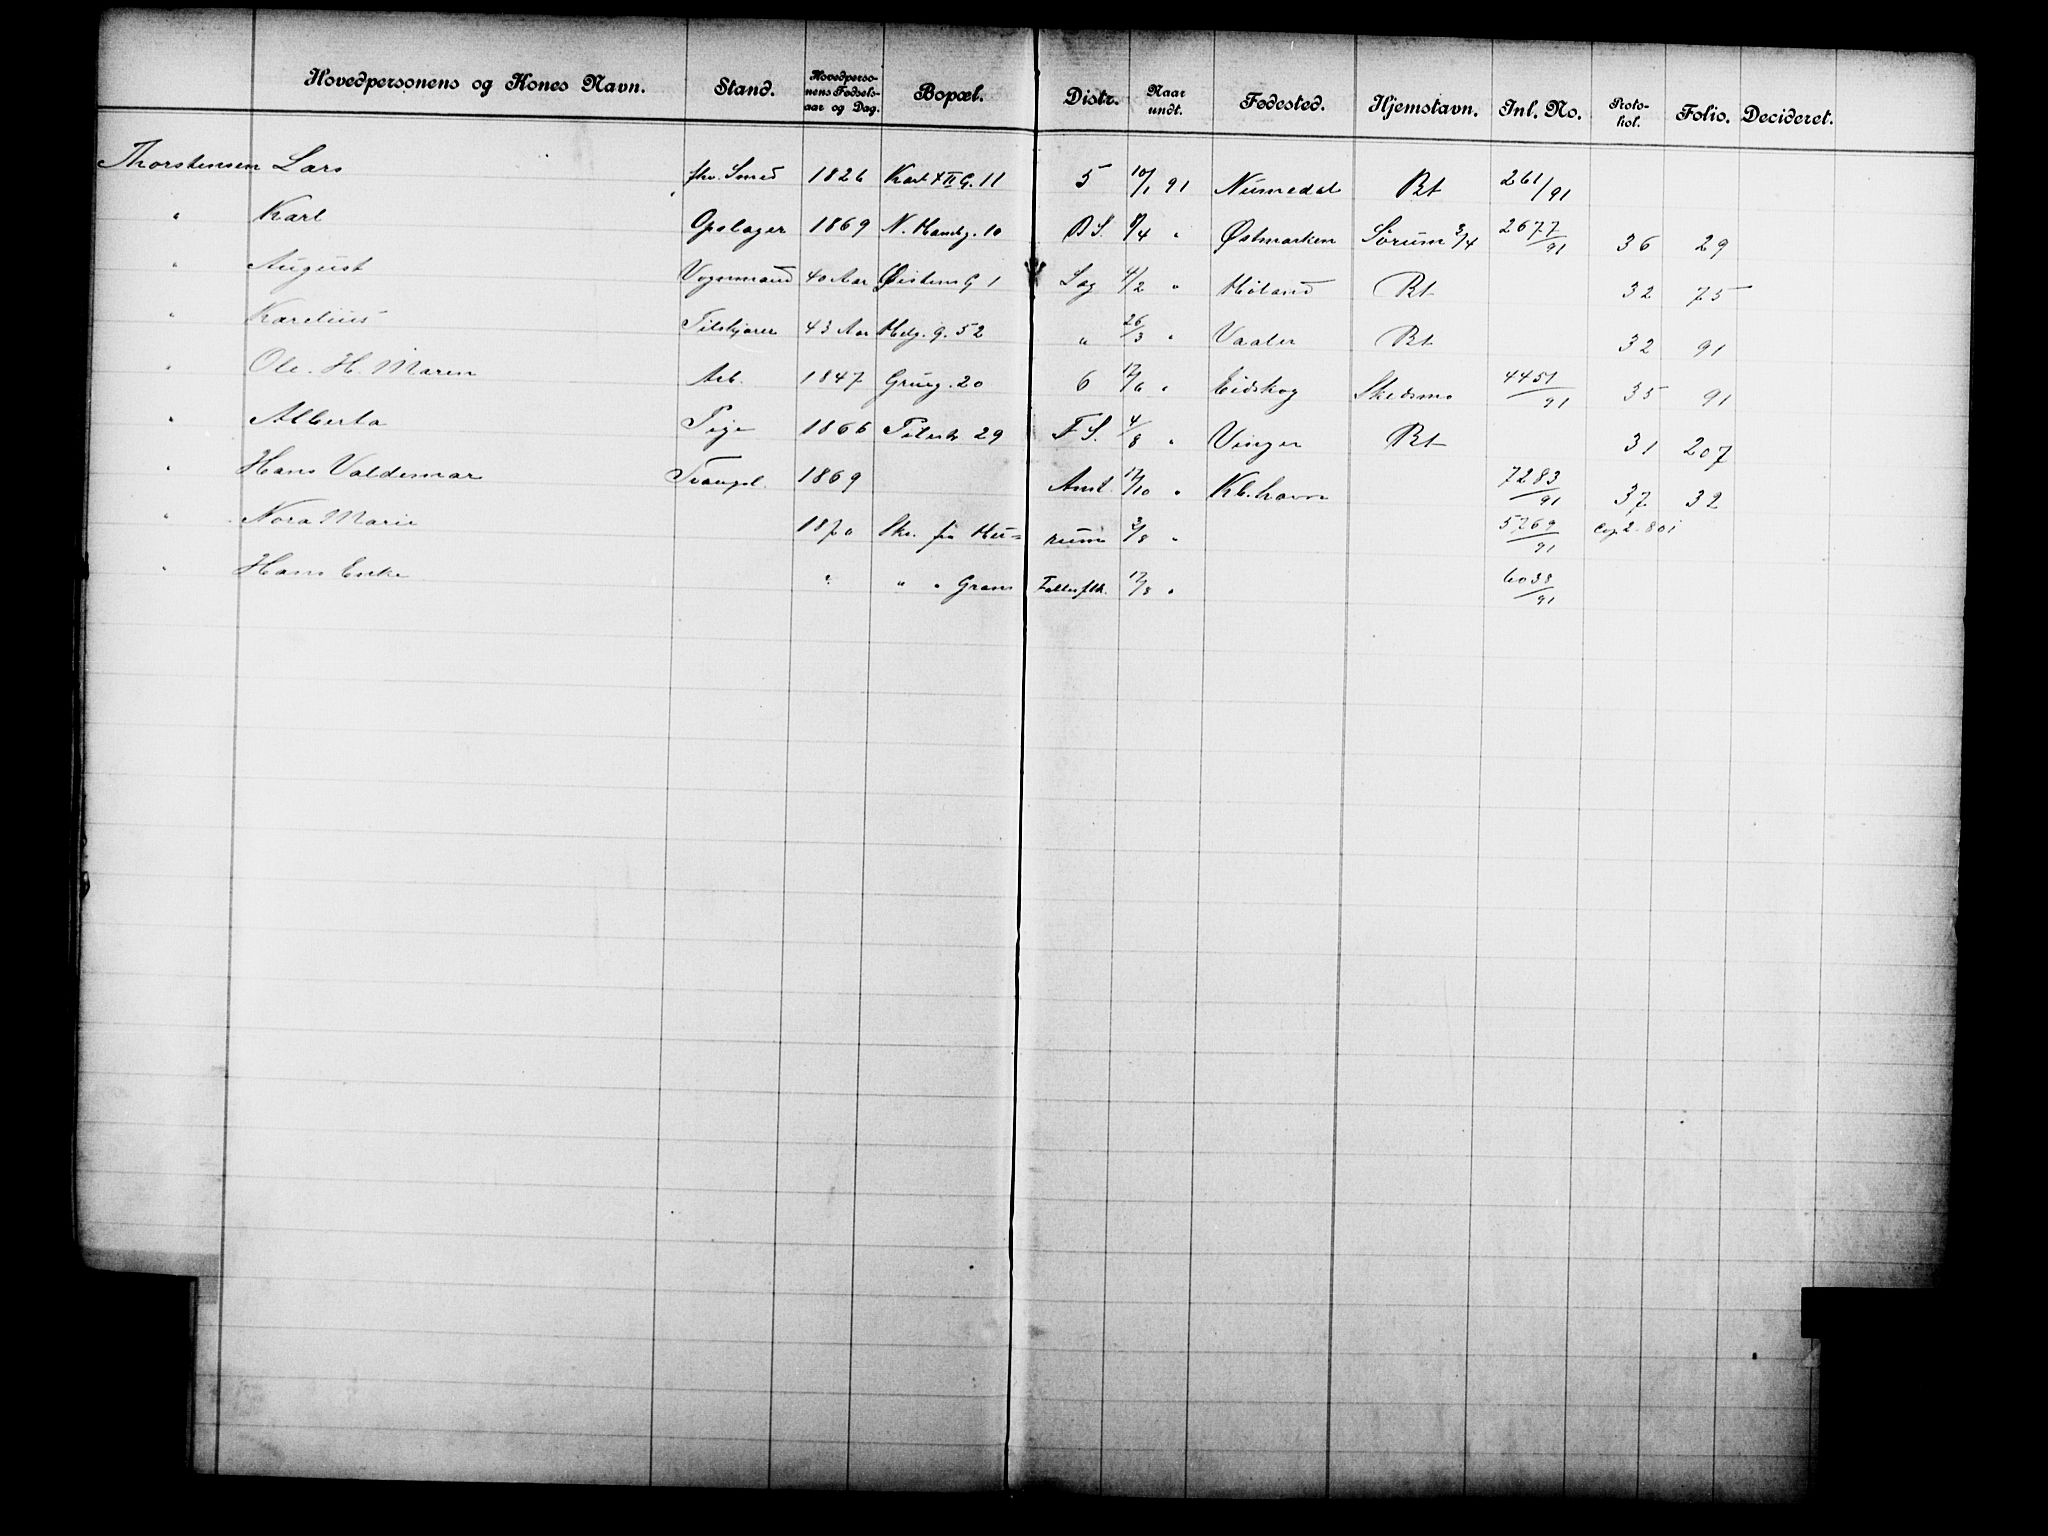 Hovedpersonens og Kones Navn. Stand. Hovedperso-nens Fødsels-aar og Dag. Bopæl. Distr. Naar undt. Fødested. Hjemstavn. Inl. No. Proto-kol. Folio. Decideret.
Thorstensen Lars fhv. Smed 1826 Karl XII G. 11 5 10/1 91 Numedal Bt 261/91
" Karl Opslager 1869 N. 10 D S. 8/4 " Østmarken Sørum 3/4 2677/91 36 29
" August Vognmand 40 Aar Øistens G 1 Sag 4/2 " Høland Bt 32 75
" Karelius 43 Aar Helg. g. 52 " 26/3 " Vaaler Bt 32 91
" Ole. H. Maren Arb. 1847 Grüng. 20 6 12/6 " Eidskog Skedsmo 4451/91 35 91
" Alberta Pige 1866 Pilestr 29 F S. 4/8 " Vinger Bt 31 207
" Hans Valdemar Tvangsl. 1869 Anst. 17/10 " Kb.havn 7283/91 37 32
" Nora Marie 1870 Skr. fra Hu=rum 3/8 " 5269/91 Cop. 2. 801
" Hans Enke " " " Grans Fattigfth. 17/8 " 6038/91